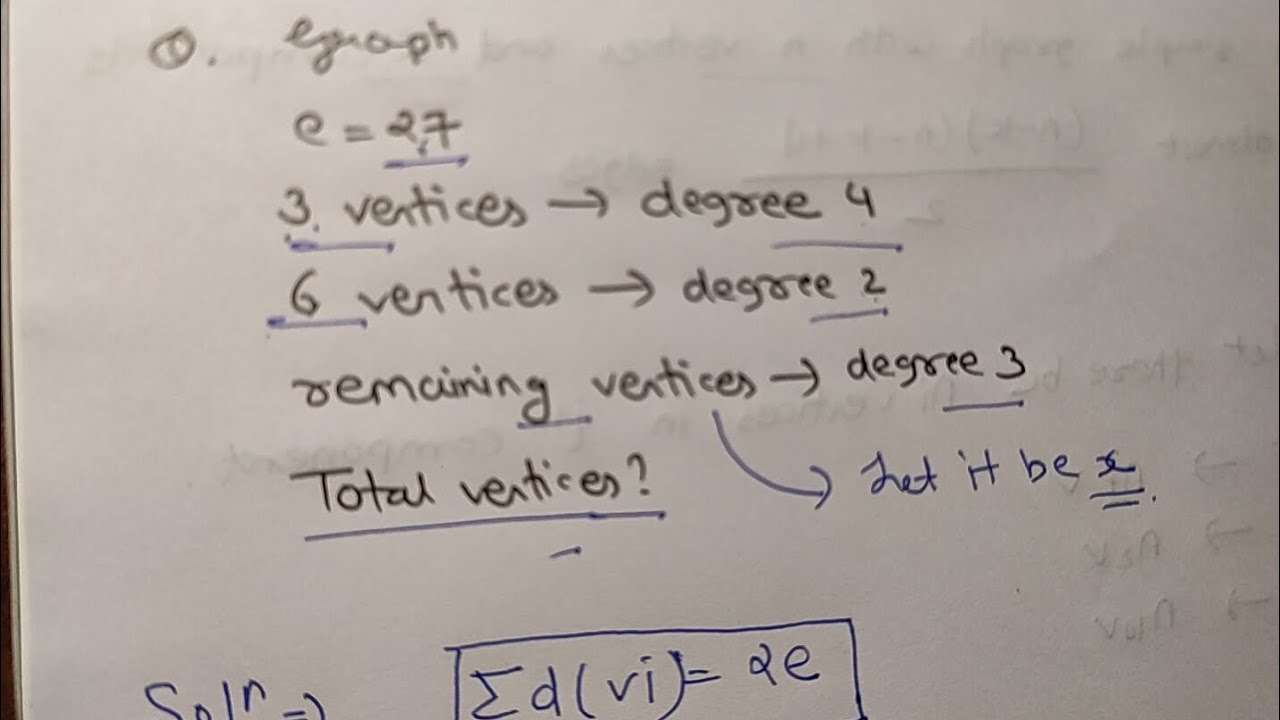 Q. graph
e = 27
3 vertices → degree 4
6 vertices → degree 2
remaining vertices → degree 3
Total vertices?
→ Let it be x.
Soln ⇒ Σd(vi) = 2e